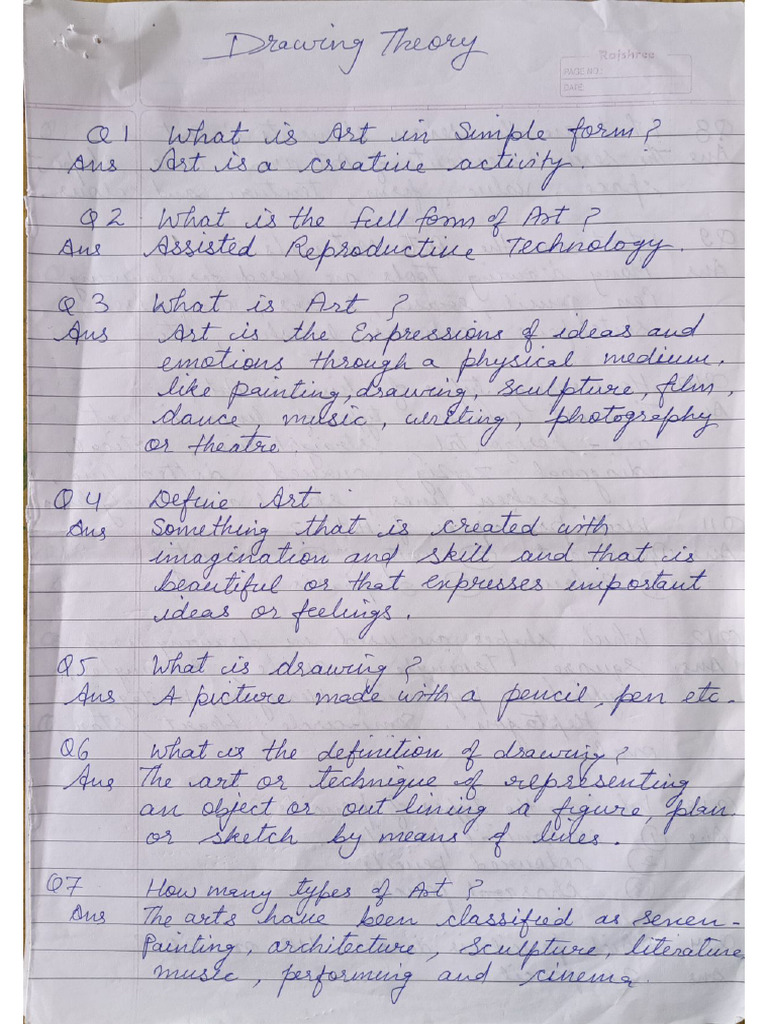 Drawing Theory
Rajshree
PAGE NO.:
DATE:
Q1 What is Art in Simple form?
Ans Art is a creative activity.
Q2 What is the full form of Art?
Ans Assisted Reproductive Technology.
Q3 What is Art?
Ans Art is the Expressions of ideas and
emotions through a physical medium.
like painting, drawing, sculpture, film,
dance, music, writing, photography
or theatre.
Q4 Define Art
Ans Something that is created with
imagination and skill and that is
beautiful or that expresses important
ideas or feelings.
Q5 What is drawing?
Ans A picture made with a pencil, pen etc.
Q6 What is the definition of drawing?
Ans The art or technique of representing
an object or out lining a figure, plan
or sketch by means of lines.
Q7 How many types of Art?
Ans The arts have been classified as seven-
Painting, architecture, sculpture, literature,
music, performing and cinema.